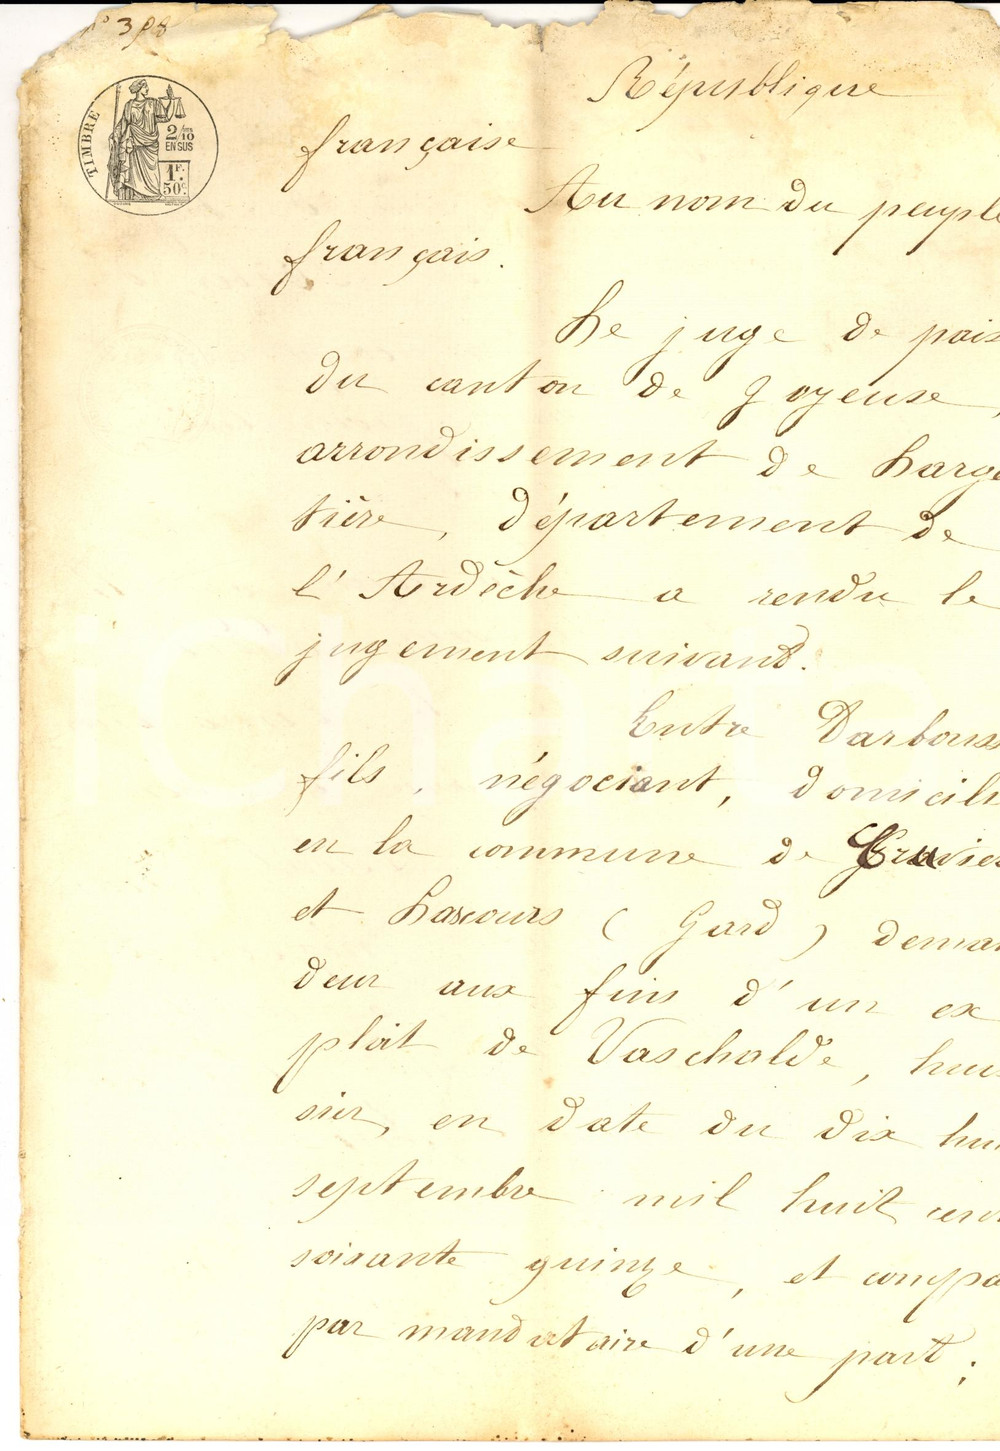 n° 398
TIMBRE
2/10
EN SUS
1F.
50c.
République
française
Au nom du peuple
français.
Le juge de paix
du canton de Joyeuse,
arrondissement de Large
tière, département de
l'Ardèche a rendu le
jugement suivant.
Entre Darbouss
fils, négociant, domicili
en la commune de Cruvier
et Lascours (Gard) deman
deur aux fins d'un ex
ploit de Vaschalde, huis
sier, en date du dix huit
septembre mil huit cent
soixante quinze, et compa
par mandataire d'une part;